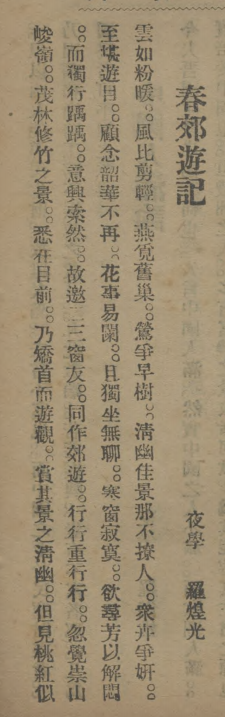 春郊遊記
夜學　羅煌光
雲如粉暖。。風比剪輕。。燕覓舊巢。。鶯爭早樹。。淸幽佳景那不撩人。。衆卉爭妍。。
至堪遊目。。顧念韶華不再。。花事易闌。。且獨坐無聊。。寒窗寂寞。。欲尋芳以解悶
。。而獨行踽踽。。意興索然。。故邀二三窗友。。同作郊遊。。行行重行行。。忽覺崇山
峻嶺。。茂林修竹之景。。悉在目前。。乃矯首而遊觀。。賞其景之淸幽。。但見桃紅似